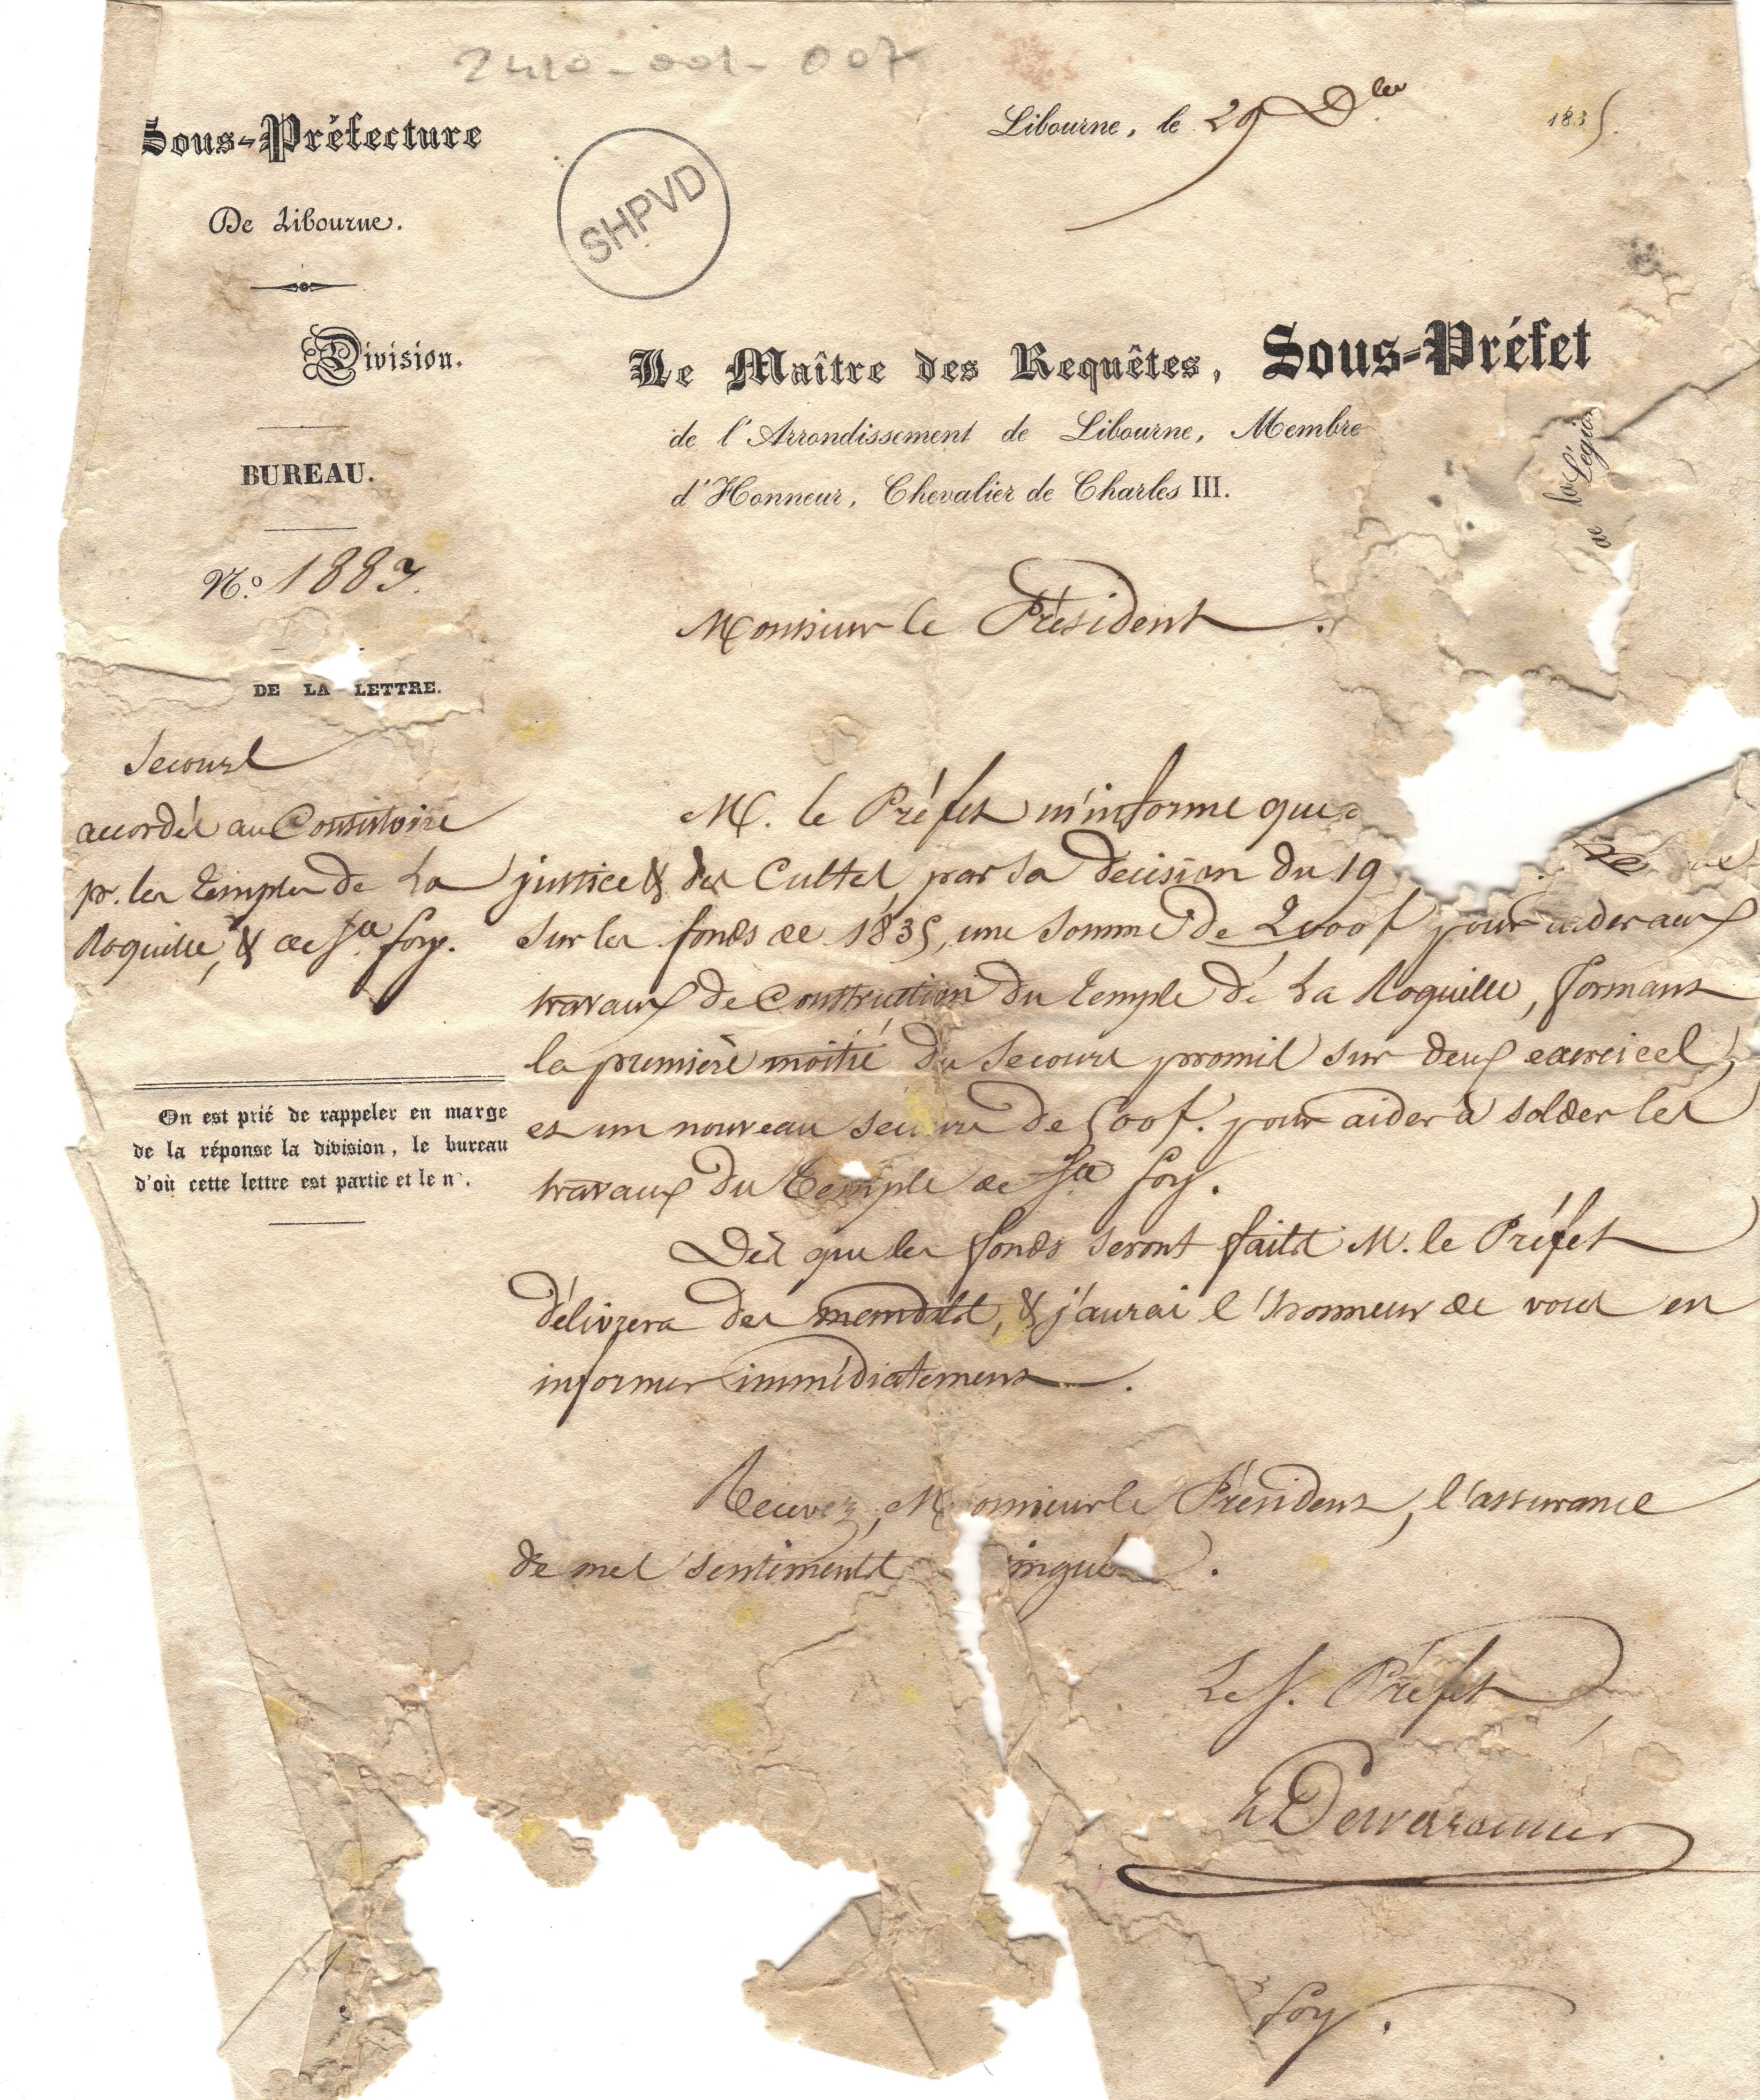 2410-001-007
Sous-Préfecture
De Libourne.
Libourne, le 29 D.bre 1835.
SHPVD
Division.
BUREAU.
N.º 1883.
DE LA LETTRE.
Secours
accordés au Consistoire
pr. les temples de La
Roquille, & de Ste foy.
On est prié de rappeler en marge
de la réponse la division, le bureau
d'où cette lettre est partie et le nº.
Le Maître des Requêtes, Sous-Préfet
de l'Arrondissement de Libourne, Membre
de la Légion
d'Honneur, Chevalier de Charles III.
Monsieur le Président.
M. le Préfet m'informe que
justice & des Cultes, par sa décision du 19
sur les fonds de 1835, une somme de 2000f pour aider aux
travaux de Construction du temple de La Roquille, formant
la première moitié du secours promis sur deux exercices,
et un nouveau secours de 500f. pour aider à solder les
travaux du temple de Ste foy.
Dès que les fonds seront faits M. le Préfet
délivrera des mandats, & j'aurai l'honneur de vous en
informer immédiatement.
Recevez, Monsieur le Président, l'assurance
de mes sentiments ingués.
Le S. Préfet
foy.